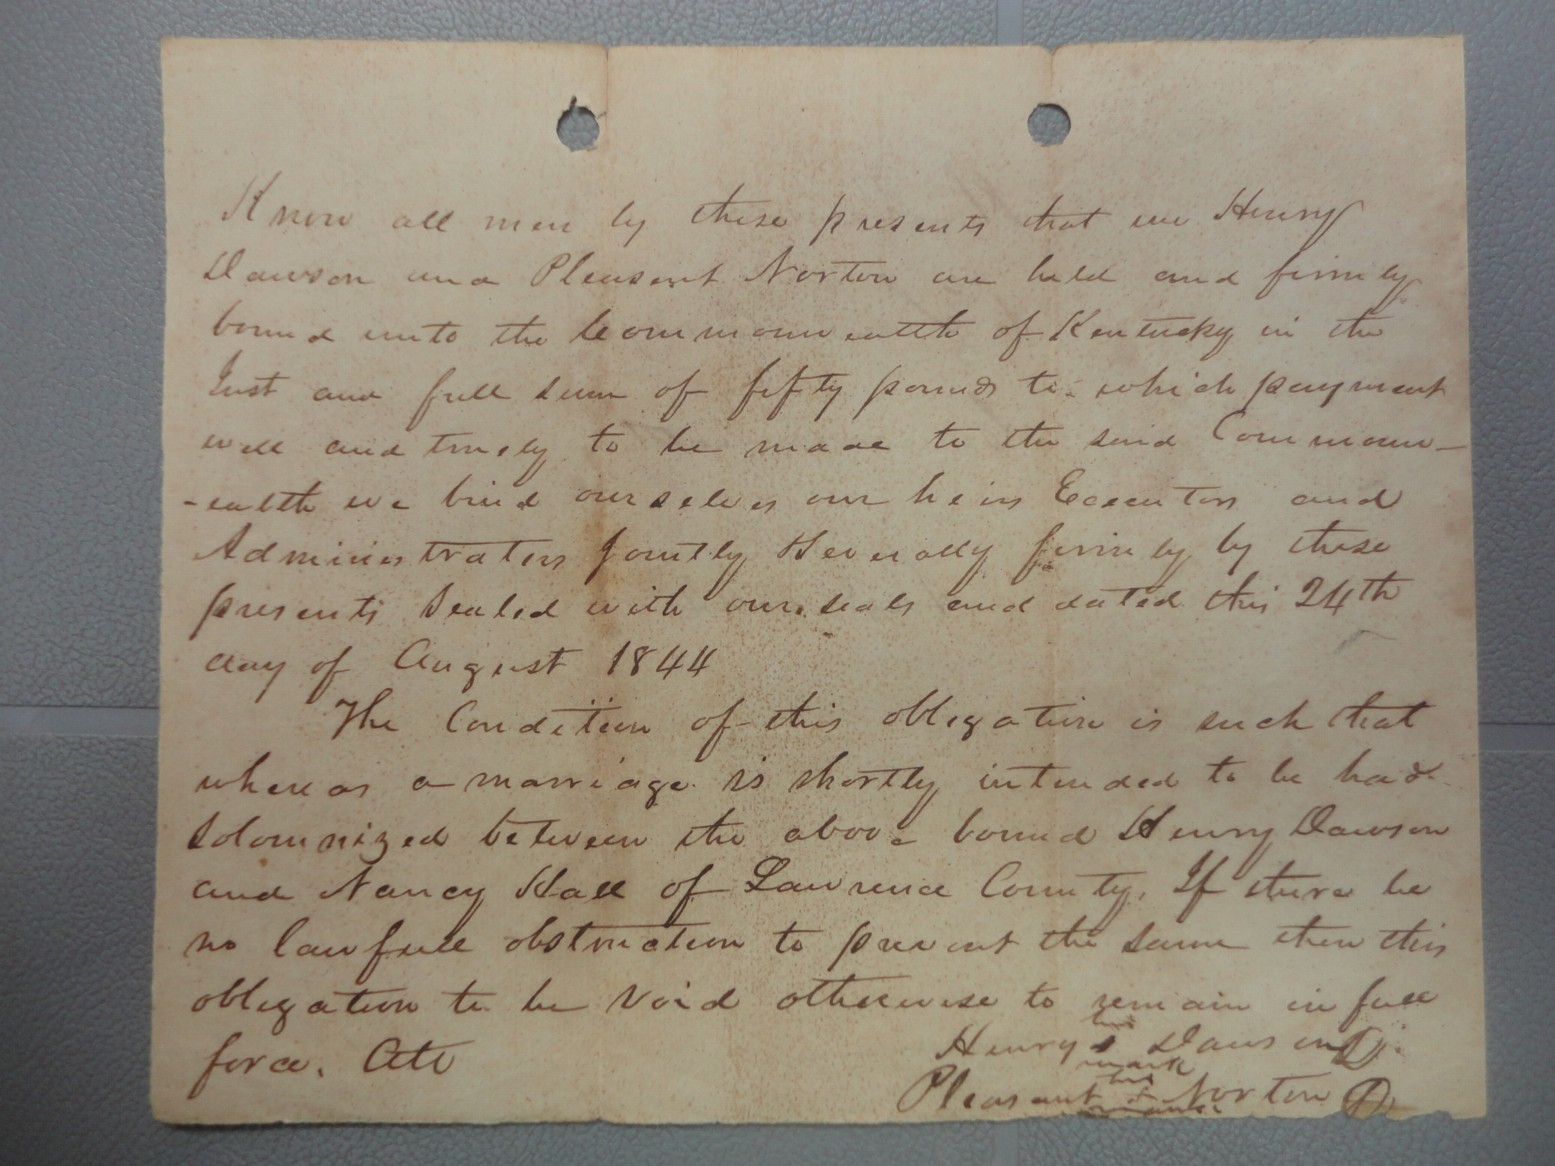 Know all men by these presents that we Henry
Dawson and Pleasant Norton are held and firmly
bound unto the Commonwealth of Kentucky in the
Just and full sum of fifty pounds to which payment
well and truely to be made to the said Common-
-ealth we bind ourselves our heirs Executors and
Administrators Jointly Severally firmly by these
presents Sealed with our seals and dated this 24th
day of August 1844
The Condition of this obligation is such that
whereas a marriage is shortly intended to be had
Solomnized between the above bound Henry Dawson
and Nancy Hall of Lawrence County, If there be
no lawfull obstruction to prevent the same then this
obligation to be void otherwise to remain in full
force.
his
Henry Dawson
mark
his
Pleasant Norton
mark